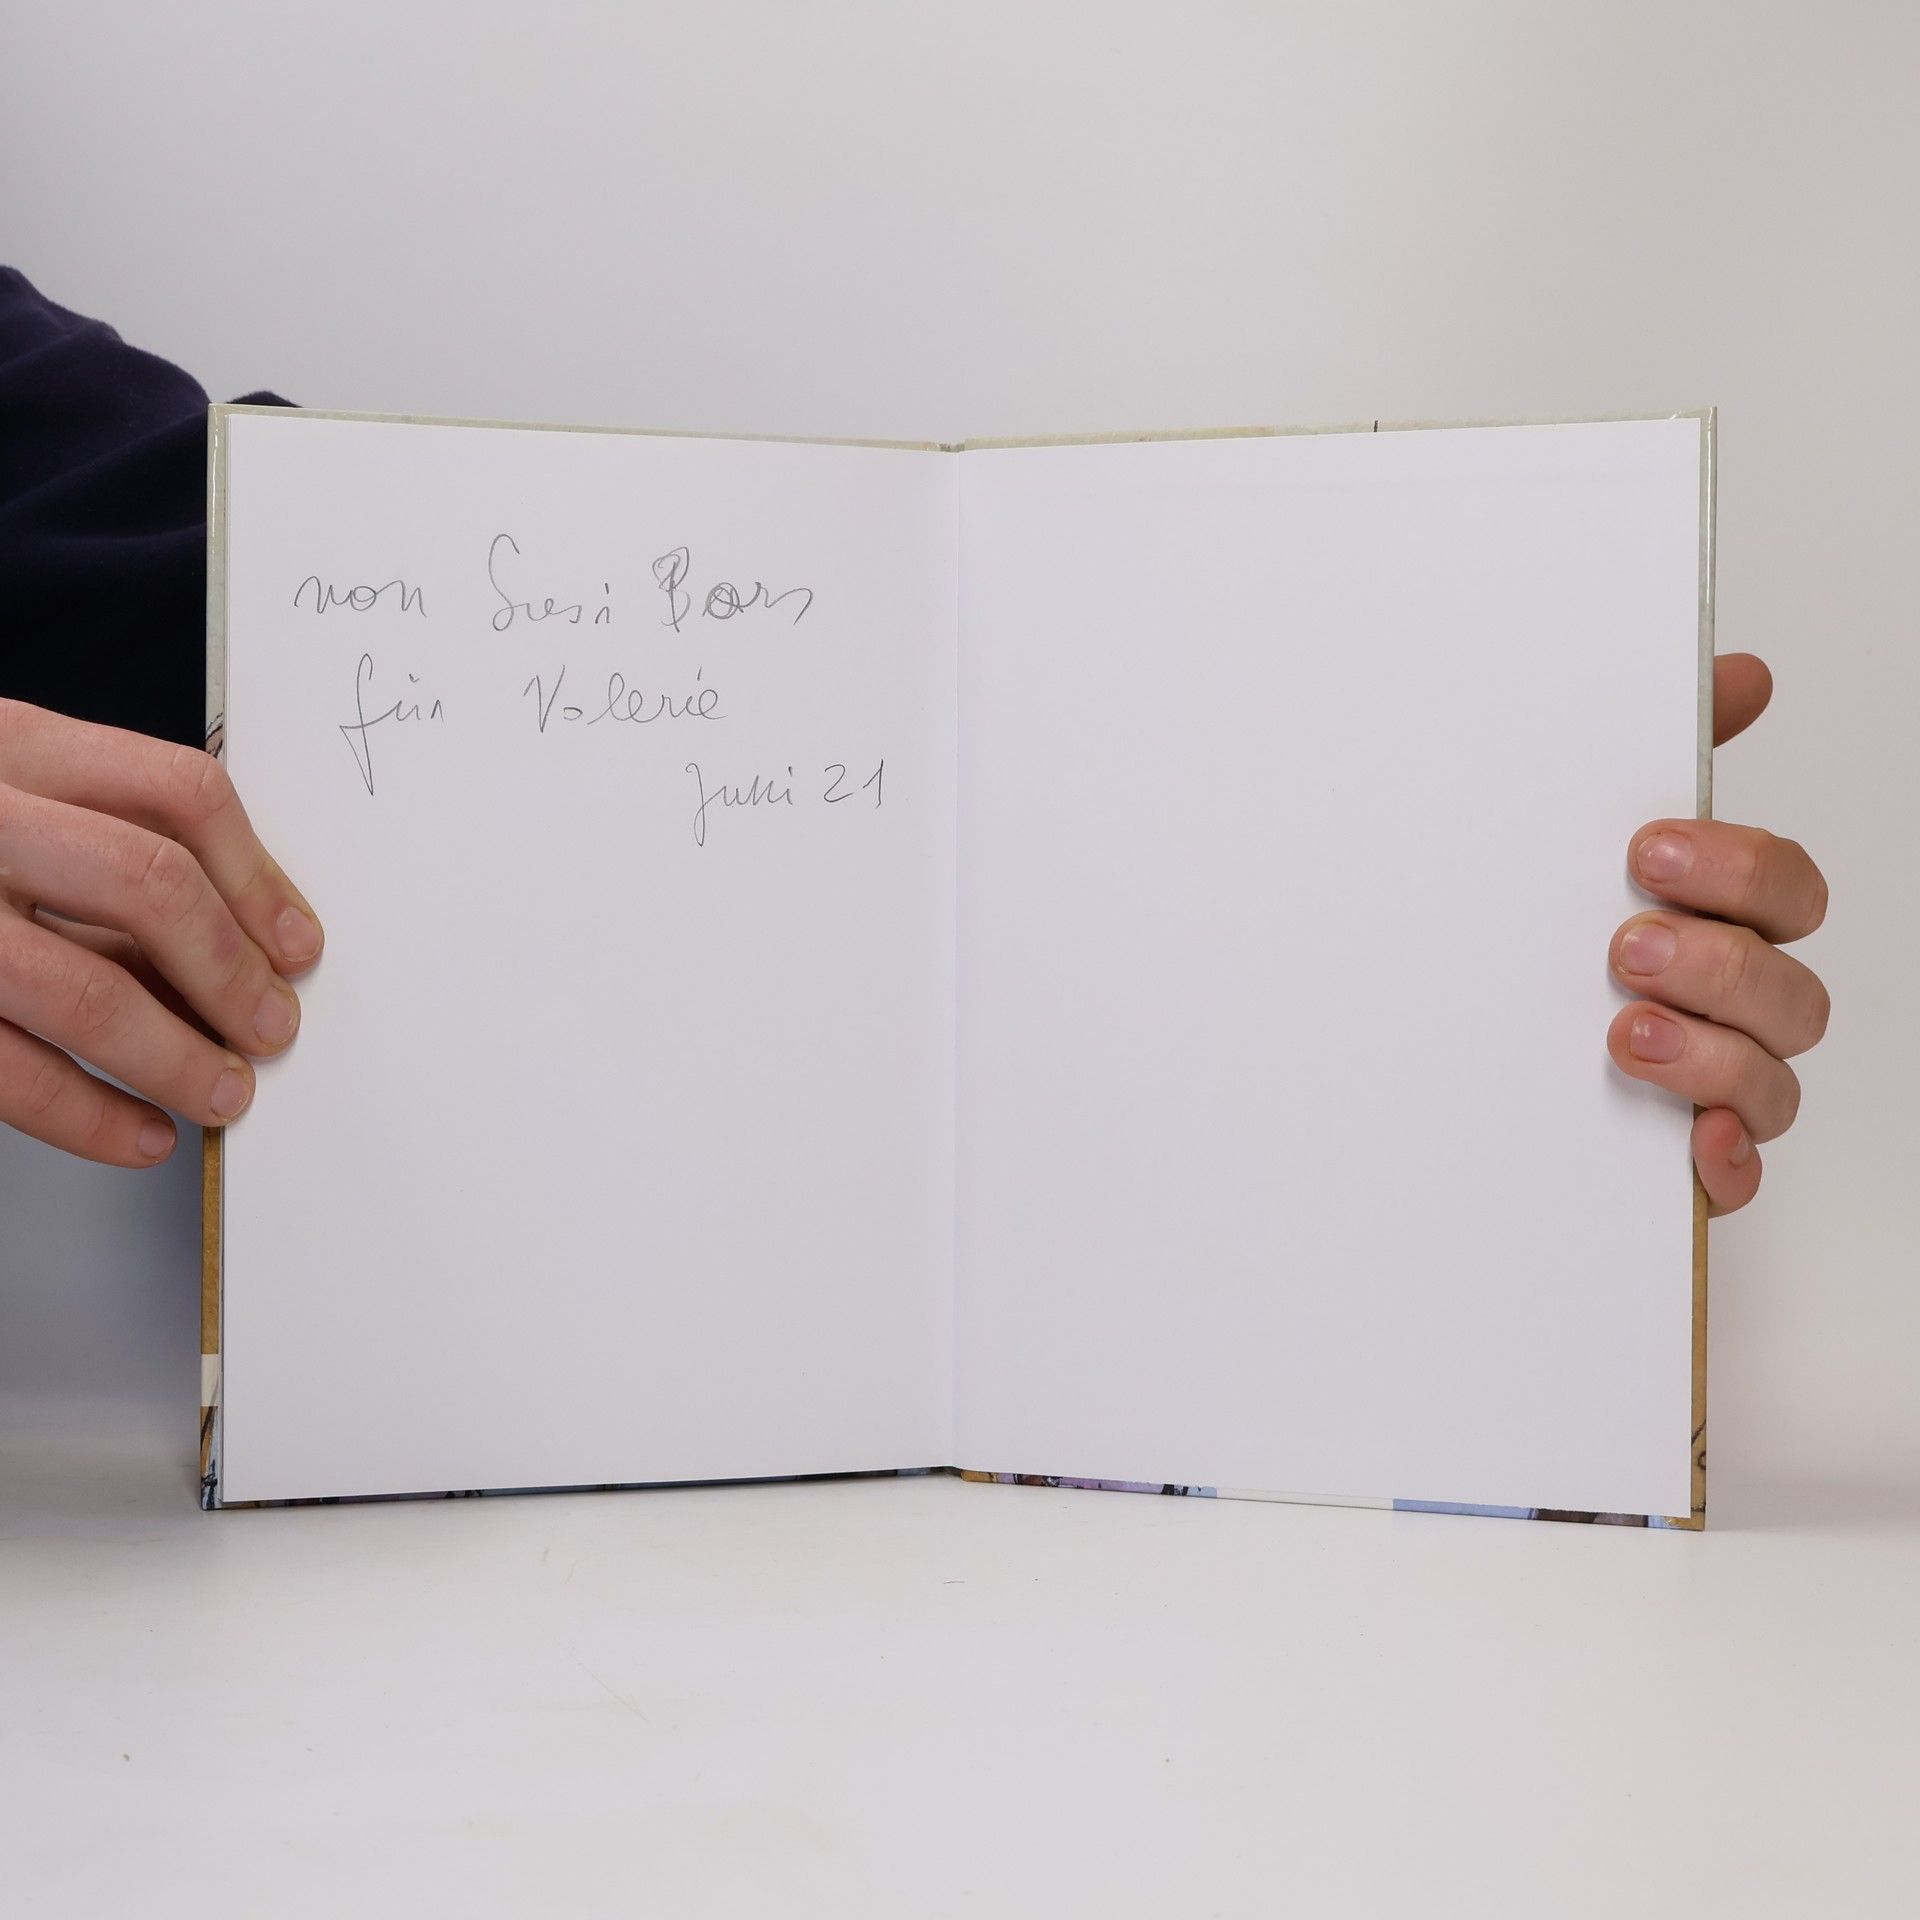 von Susi Bors
für Valerie
Juni 21